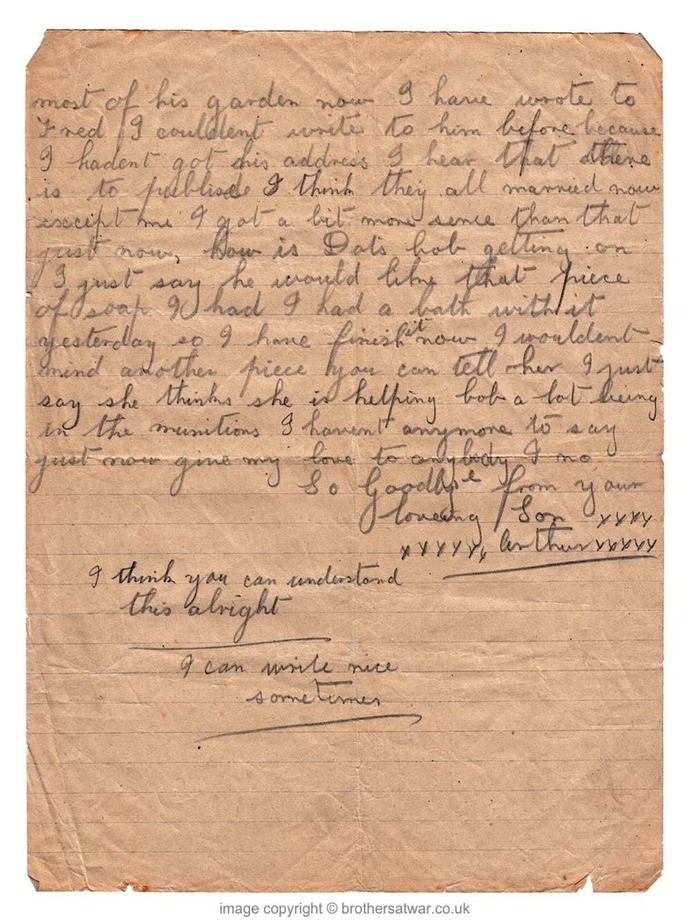 most of his garden now I have wrote to
Fred I couldent write to him before because
I hadent got his address I hear that there
is to I think they all married now
except me I got a bit more sence than that
just now, how is Dots bob getting on
I just say he would like that piece
of soap I had I had a bath with it
yesterday so I have finish it now I wouldent
mind another piece you can tell her I just
say she thinks she is helping bob a lot being
in the munitions I havent anymore to say
just now give my love to anybody I no
So Goodbye from your
loveing Son xxxx
xxxxxx Arthur xxxxx
I think you can understand
this alright
I can write nice
sometimes
image copyright © brothersatwar.co.uk